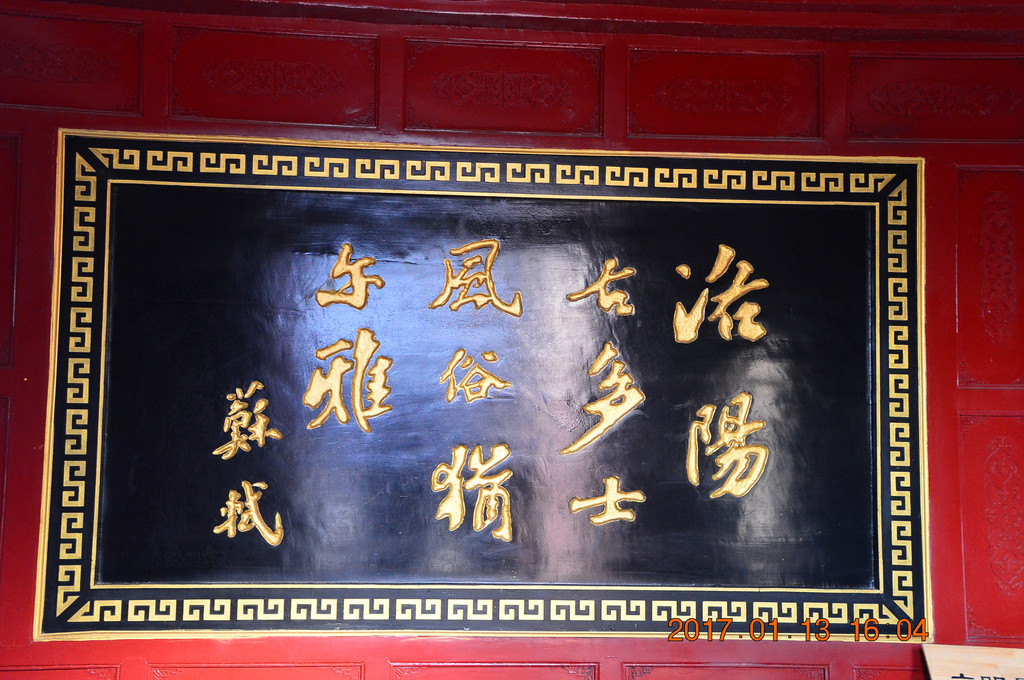 洛陽
古多士
風俗猶
尔雅
蘇軾
2017.01.13 16:04